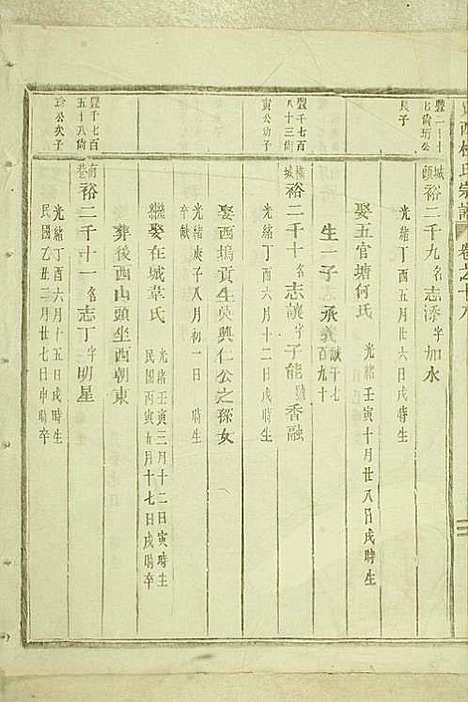 氏宗譜 卷之十八
豐二十
七衛坊公
長子
城頭
裕二千九名志添字如水
光緒丁酉五月廿六日戌時生
娶五官塘何氏
光緒壬寅十月廿八日戌時生
生一子
承義
誠千七百九十
豐千七百
八十三衛
寅公幼子
城
裕二千十名志讓字子能號香融
光緒丁酉六月十日戌時生
娶西塢貢生吳興仁公之孫女
光緒庚子八月初一日 時生
卒缺
繼娶在城韋氏
光緒壬寅三月十二日寅時生
民國丙寅五月十七日戌時卒
葬後西山頭坐西朝東
豐千七百
五十八衛
公次子
南巷
裕二千十一名志丁字明星
光緒丁酉六月十五日戌時生
民國乙丑二月廿七日申時卒